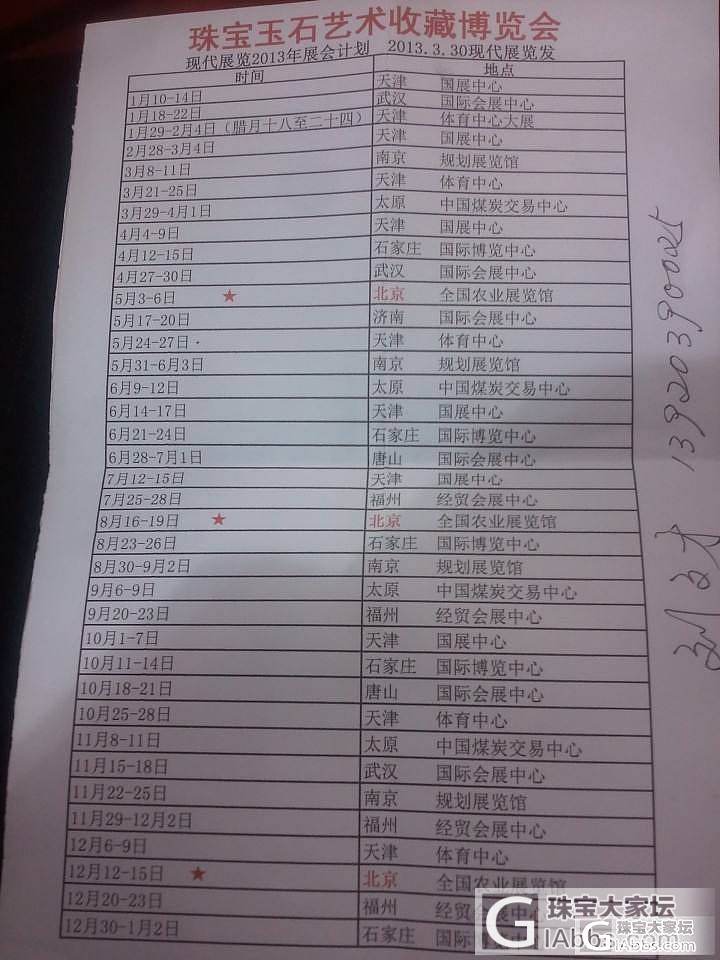 珠宝玉石艺术收藏博览会
现代展览2013年展会计划 2013.3.30现代展览发
时间 地点
1月10-14日 天津 国展中心
1月18-22日 武汉 国际会展中心
1月29-2月4日（腊月十八至二十四） 天津 体育中心大展
2月28-3月4日 天津 国展中心
3月8-11日 南京 规划展览馆
3月21-25日 天津 体育中心
3月29-4月1日 太原 中国煤炭交易中心
4月4-9日 天津 国展中心
4月12-15日 石家庄 国际博览中心
4月27-30日 武汉 国际会展中心
5月3-6日 ★ 北京 全国农业展览馆
5月17-20日 济南 国际会展中心
5月24-27日 天津 体育中心
5月31-6月3日 南京 规划展览馆
6月9-12日 太原 中国煤炭交易中心
6月14-17日 天津 国展中心
6月21-24日 石家庄 国际博览中心
6月28-7月1日 唐山 国际会展中心
7月12-15日 天津 国展中心
7月25-28日 福州 经贸会展中心
8月16-19日 ★ 北京 全国农业展览馆
8月23-26日 石家庄 国际博览中心
8月30-9月2日 南京 规划展览馆
9月6-9日 太原 中国煤炭交易中心
9月20-23日 福州 经贸会展中心
10月1-7日 天津 国展中心
10月11-14日 石家庄 国际博览中心
10月18-21日 唐山 国际会展中心
10月25-28日 天津 体育中心
11月8-11日 太原 中国煤炭交易中心
11月15-18日 武汉 国际会展中心
11月22-25日 南京 规划展览馆
11月29-12月2日 福州 经贸会展中心
12月6-9日 天津 体育中心
12月12-15日 ★ 北京 全国农业展览馆
12月20-23日 福州 经贸会展中心
12月30-1月2日 石家庄 国际
13920390025
珠宝大家坛
GIAbbs.com
珠宝大家坛
GIAbbs.com